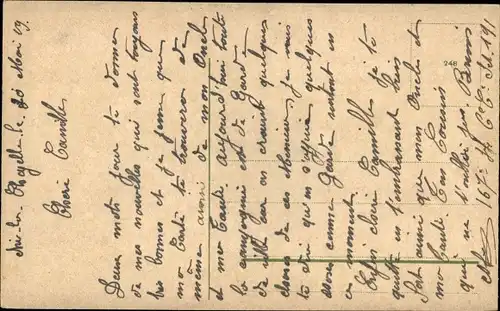 Aix-la-Chapelle le 20 Mai 19.
Chère Camille
Deux mots pour te donner
de mes nouvelles qui sont toujours
très bonnes et je pense que
ma carte te trouvera de
même ainsi de mon Oncle
et ma Tante aujourd'hui toute
la compagnie est de Gard
de ville car on craint quelques
choses de ces Messieurs je ne
te dit qu'on s'affuie quelques
choses comme Garde surtout en
ce moment.
Enfin chère Camille je te
quitte en t'embrassant bien
fort ainsi que mon Oncle et
ma Tante Ton Cousin
qui ne t'oublie pas
167e
248